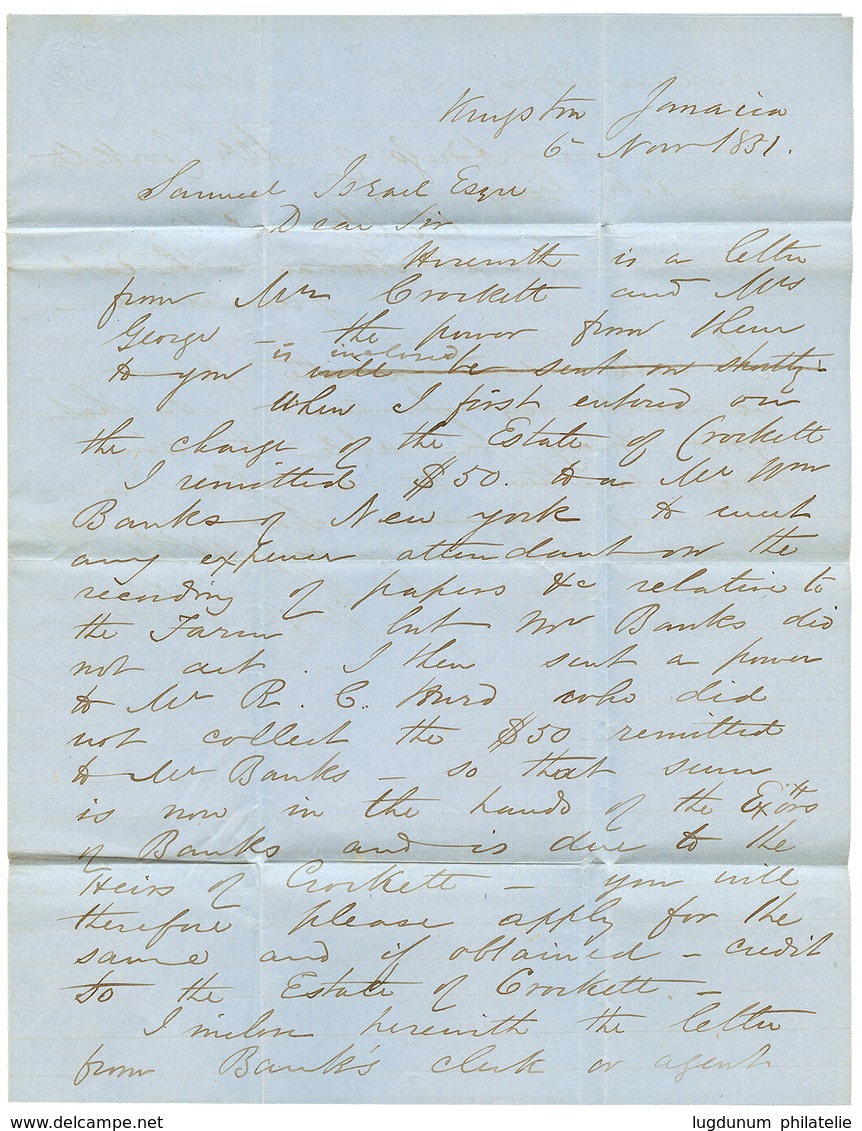 Kingston Jamaica
6 Novr 1851.
Samuel Israel Esqre
Dear Sir
Herewith is a letter
from Mrs Crockett and Mrs
George – the power from them
is inclosed
to you will be sent on shortly
When I first entered on
the charge of the Estate of Crockett
I remitted $50. to a Mr Wm
Banks of New york to meet
any expenses attendant on the
recording of papers &c relative to
the Farm but Mr Banks did
not act. I then sent a power
to Mr R. C. Hurd who did
not collect the $50 remitted
to Mr Banks – so that sum
is now in the hands of the Exors
of Banks and is due to the
Heirs of Crockett – you will
therefore please apply for the
same and if obtained – credit
to the Estate of Crockett –
I inclose herewith the letter
from Bank's clerk or agent
www.delcampe.net
lugdunum philatelie